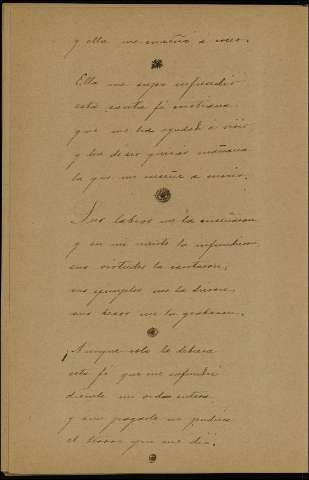 y ella me enseñó a creer.
Ella me supo infundir
esta santa fé cristiana
que me ha ayudado á vivir
y ha de ser quizás mañana
la que me enseñe a morir.
Sus labios me la enseñaron
y en mi mente la infundieron
sus virtudes la
sus ejemplos me la dieron
sus besos me la grabaron.
¡Aunque solo la debiera
esta fé que me infundió
diérale mi vida entera
y aun pagarle no pudiera
el tesoro que me dió!